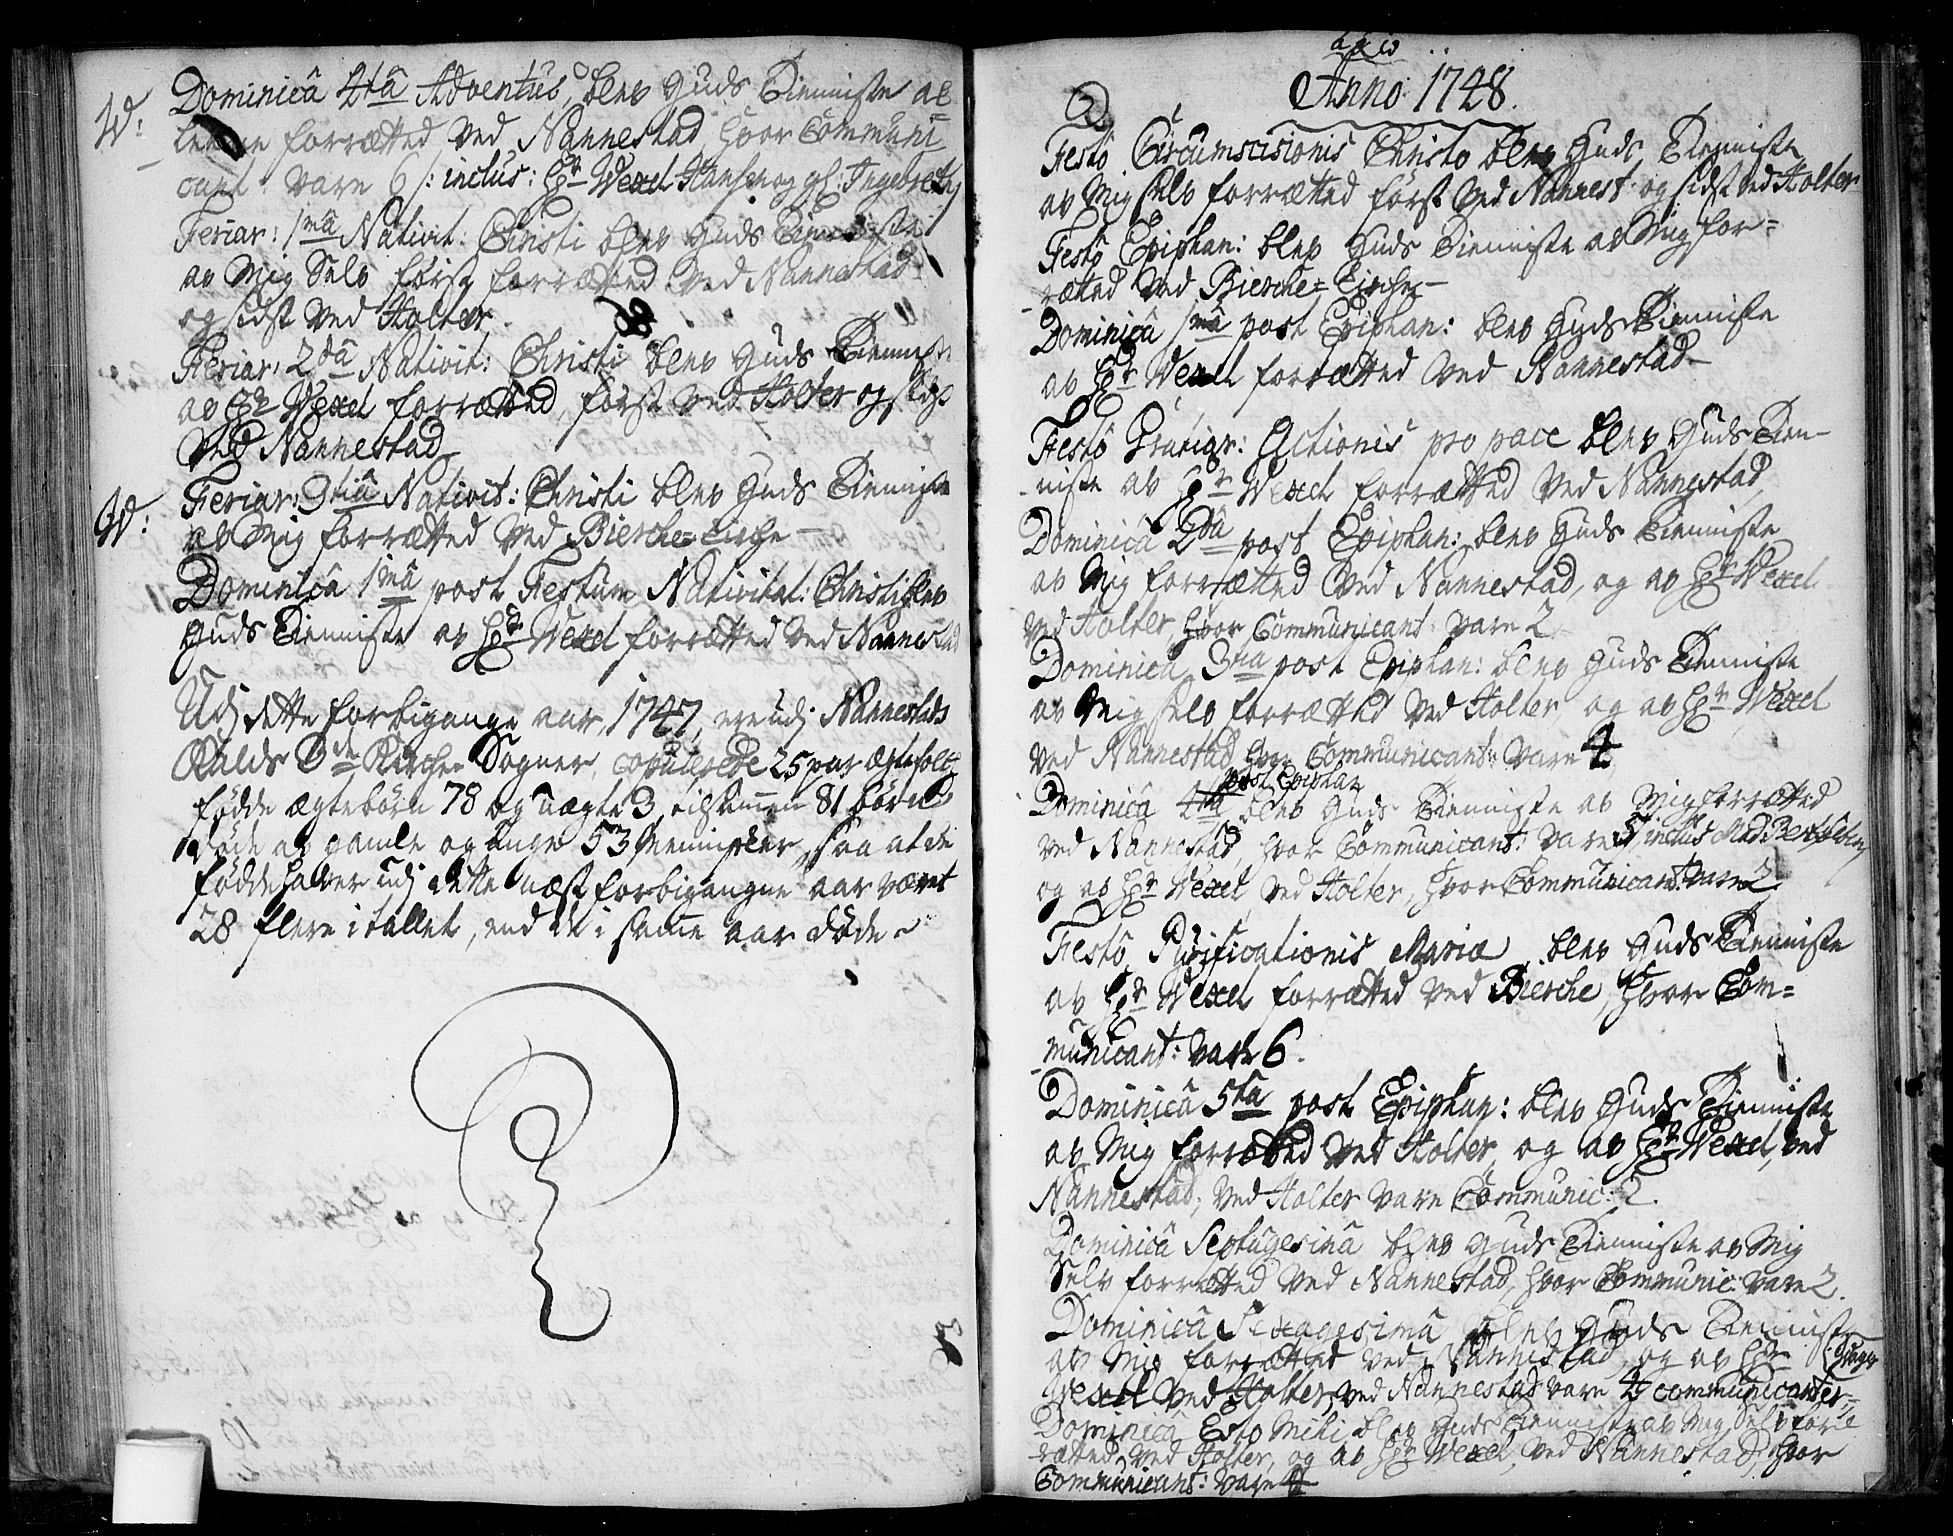 W:
Dominicâ 4tâ Adventus, blev Guds Tienniste al-
leene forrætted ved Nannestad, hvor Communi
cant: vare 6 /: inclus: Hr Wexel Hansen og gl: Ingebreth
Feriar: 1mâ Nativit: Christi blev Guds Tienniste
av Mig Selv først forrætted ved Nannestad
og sidst ved Holter.
Feriar: 2dâ Nativit: Christi blev Guds Tienniste
av Hr Wexel forrætted, først ved Holter og sidst
ved Nannestad
W:
Feriar: 3tiâ Nativit: Christi blev Guds Tienniste
av Mig forrætted ved Bierche-Kirche –
Dominicâ 1mâ post Festum Nativitat: Christi blev
Guds Tienniste av Hr Wexel forrætted ved Nannestad
Udj dette forbigangne aar, 1747, ere udj Nannestads
Kalds 3de Kirche Sogner, copulerede 25 par ægtefolk,
fødde ægtebørn 78 og uægte 3, tilsammen 81 børn
døde av gamle og unge 53 Mennisker, saa at de
fødde haver udj dette næst forbigangne aar været
28 flere i tallet, end de i samme aar døde –
Anno: 1748.
Festô Circumscisionis Christo blev Guds Tienniste
av Mig selv forrætted først ved Nannest: og sidst ved Holter
Festô Epiphan: blev Guds Tienniste av Mig for-
rætted ved Bierche-Kirche –
Dominicâ 1mâ post Epiphan: blev Guds Tienniste
av Hr Wexel forrætted ved Nannestad –
Festô Gratiar: Actionis pro pace blev Guds Tien-
niste av Hr Wexel forrætted ved Nannestad,
Dominicâ 2dâ post Epiphan: blev Guds Tienniste
av Mig forrætted ved Nannestad, og av Hr Wexel
ved Holter, hvor Communicant: vare 2
Dominicâ 3tia post Epiphan: blev Guds Tienniste
av Mig selv forrætted ved Holter, og av Hr Wexel
ved Nannestad, hvor Communicant: vare 4
post Epiphan
Dominicâ 4tâ blev Guds Tienniste av Mig forrætted
ved Nannestad, hvor Communicant: vare 5, inclus Mad
og av Hr Wexel, ved Holter, hvor Communicant: vare 2
Festô Purificationis Mariæ, blev Guds Tienniste
av Hr Wexel forrætted ved Bierche, hvor Com-
municant: vare 6.
Dominicâ 5tâ post Epiphan: blev Guds Tienniste
av Mig forrætted ved Holter, og av Hr Wexel, ved
Nannestad; ved Holter vare Communic: 2.
Dominicâ Septugesimâ blev Guds Tienniste av Mig
Selv forrætted ved Nannestad, hvor Communic: vare 2.
Dominicâ Sexagesimâ blev Guds Tienniste
av Mig forrætted ved Nannestad, og av Hr
Wexel ved Holter, ved Nannestad vare 4 communicanter,
Dominicâ Esto Mihi blev Guds Tienniste av Mig Selv for-
rætted ved Holter, og av Hr Wexel, ved Nannestad, hvor
Communicant: vare 4